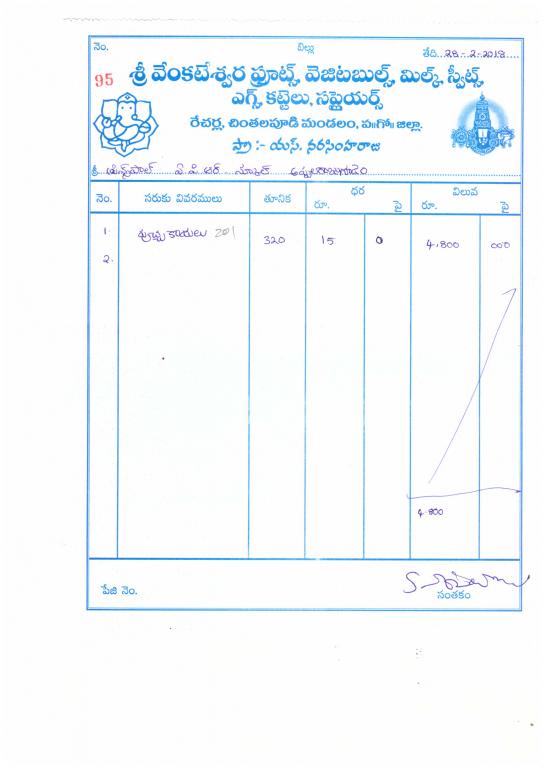 నెం. బిల్లు తేది 28-2-2018
95 శ్రీ వేంకటేశ్వర ఫ్రూట్స్, వెజిటబుల్స్, మిల్క్, స్వీట్స్,
ఎగ్స్, కట్టెలు, సప్లైయర్స్
రేచర్ల, చింతలపూడి మండలం, ప॥గో॥ జిల్లా.
ప్రొ :- యస్. నరసింహరాజు
శ్రీ ప్రిన్సిపాల్ ఏ.పి.ఆర్. స్కూల్ అప్పలరాజుగూడెం
నెం. సరుకు వివరములు తూనిక ధర విలువ
రూ. పై రూ. పై
1. పుచ్చకాయలు 201 320 15 0 4,800 000
2.
4.800
పేజి నెం. సంతకం